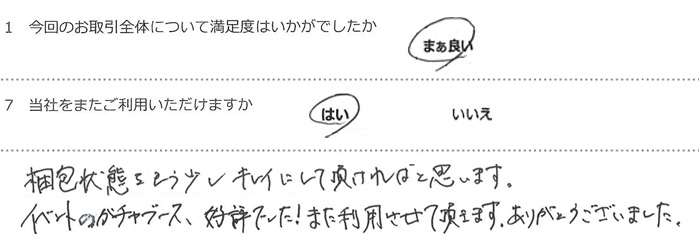 1 今回のお取引全体について満足度はいかがでしたか
まぁ良い
7 当社をまたご利用いただけますか
はい いいえ
梱包状態をもう少しキレイにして頂ければと思います。
イベントのガチャブース、好評でした!また利用させて頂きます。ありがとうございました。